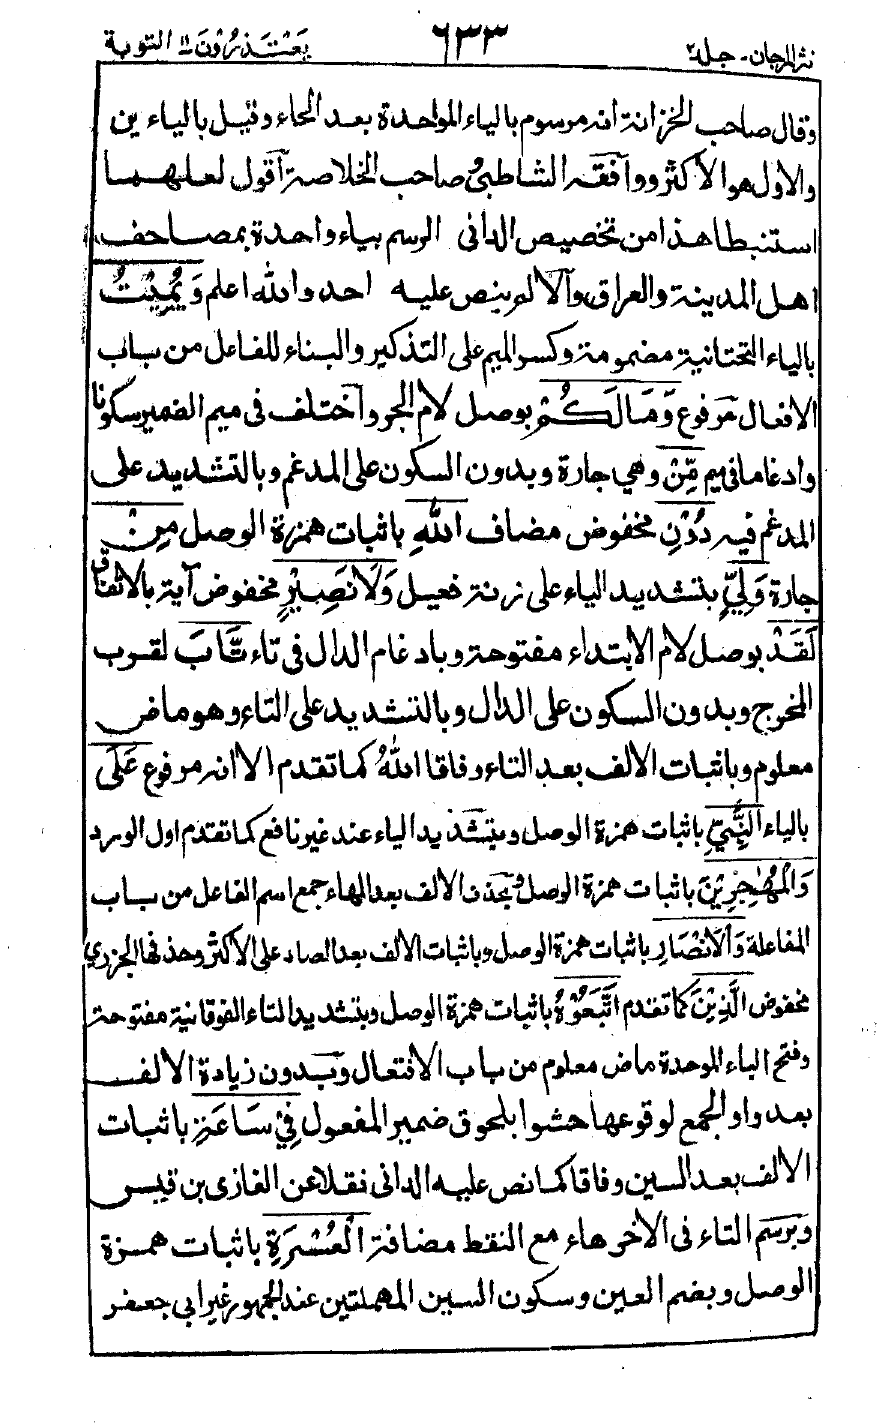 نثر المرجان - جلد ٢ ٦٣٣ يَعْتَذِرُوْنَ ١١ التوبة
وقال صاحب الخزانة انه مرسوم بالياء الواحدة بعد الحاء وقيل بالياءين
والاول هو الاكثر ووافقه الشاطبى صاحب الخلاصة آقول لعلهما
استنبطا هذا من تخصيص الدانى الرسم بياء واحدة بمصاحف
اهل المدينة والعراق والا لم ينص عليه احد والله اعلم وَيُمِيْتُ
بالياء التحتانية مضمومة وكسر الميم على التذكير والبناء للفاعل من باب
الافعال مرفوع وَمَا لَكُمْ بوصل لام الجر واختلف فى ميم الضمير سكونا
وادغاما فى ميم مِّنْ وهي جارة وبدون السكون على المدغم وبالتشديد على
المدغم فيه دُوْنِ مخفوض مضاف اللهِ باثبات همزة الوصل مِنْ
جارة وَلِيٍّ بتشديد الياء على زنة فعيل وَلَا نَصِيْرٍ مخفوض آية بالاتفاق
لَقَدْ بوصل لام الابتداء مفتوحة وبادغام الدال فى تاء تَّابَ لقرب
المخرج وبدون السكون على الدال وبالتشديد على التاء وهو ماض
معلوم وباثبات الالف بعد التاء وفاقا اللهُ كما تقدم الا انه مرفوع عَلَى
بالياء النَّبِيِّ باثبات همزة الوصل وبتشديد الياء عند غير نافع كما تقدم اول الورد
وَالْمُهٰجِرِيْنَ باثبات همزة الوصل وبحذف الالف بعد الهاء جمع اسم الفاعل من باب
المفاعلة وَالْاَنْصَارِ باثبات همزة الوصل وباثبات الالف بعد الصاد على الاكثر وحذفها الجزري
مخفوض الَّذِيْنَ كما تقدم اتَّبَعُوْهُ باثبات همزة الوصل وبتشديد التاء الفوقانية مفتوحة
وفتح الباء الموحدة ماض معلوم من باب الافتعال وبدون زيادة الالف
بعد واو الجمع لوقوعها حشوا بلحوق ضمير المفعول فِيْ سَاعَةِ باثبات
الالف بعد السين وفاقا كما نص عليه الدانى نقلا عن الغازى بن قيس
وبرسم التاء فى الاخر هاء مع النقط مضافة الْعُسْرَةِ باثبات همزة
الوصل وبضم العين وسكون السين المهملتين عند الجمهور غير ابي جعفر